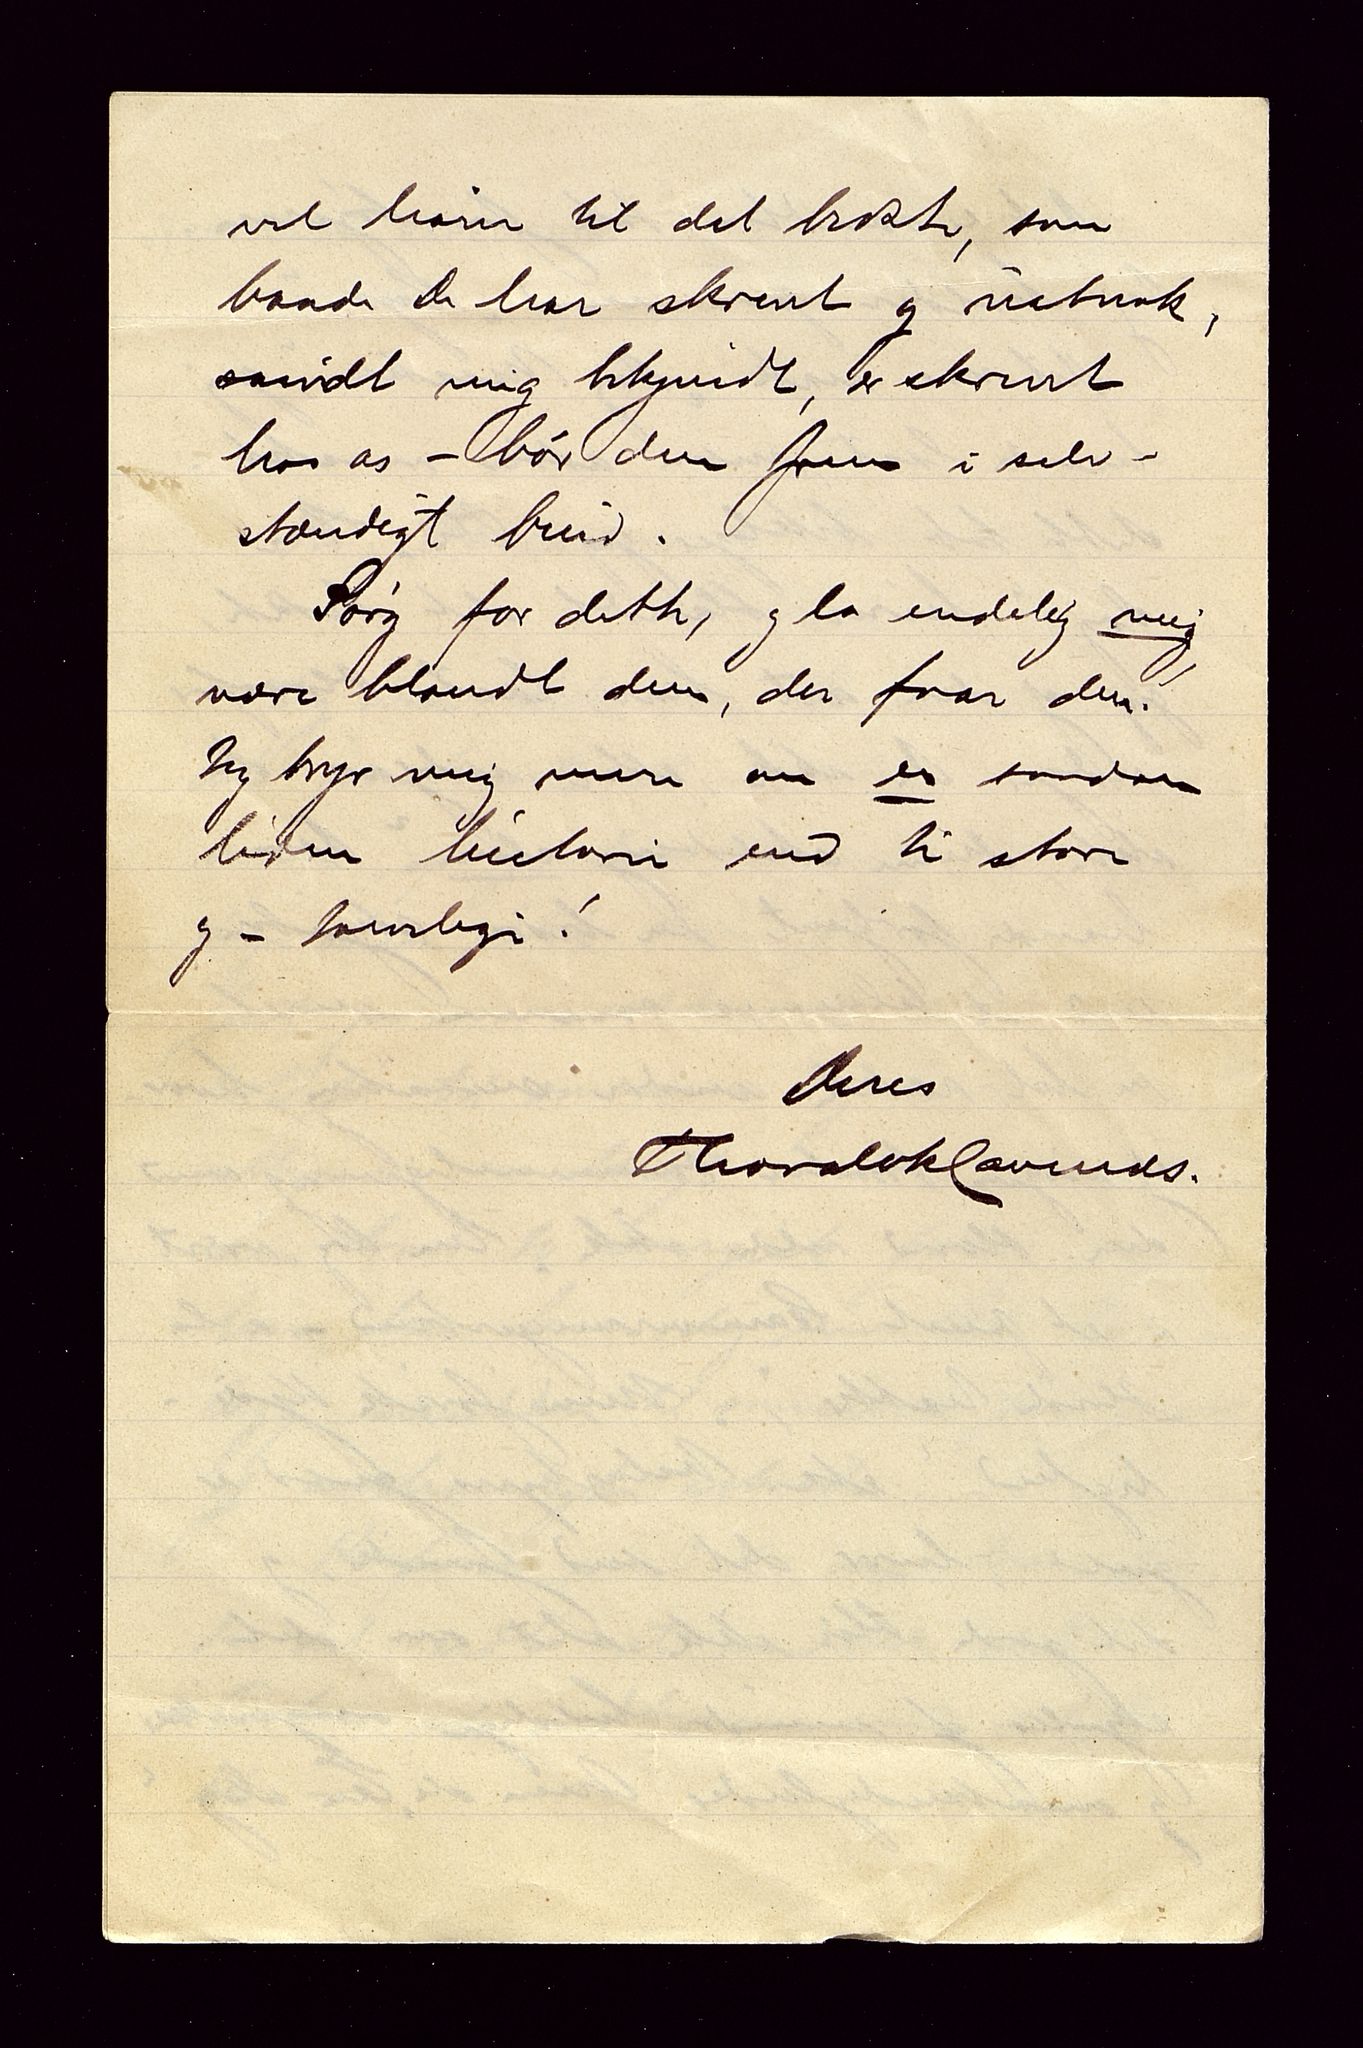 vel hører til det bedste, som
baade De har skrevet og ustvak,
saavidt mig bekjendt, er skrevet
hos os – bør den frem i selv-
stændigt bind.
Sørg for dette, og la endelig mig
være blandt dem, der faar den!
Jeg bryr mig mere om en saadan
liden historie end ti store
og – taarelige!
Deres
Thoralv Klaveness.